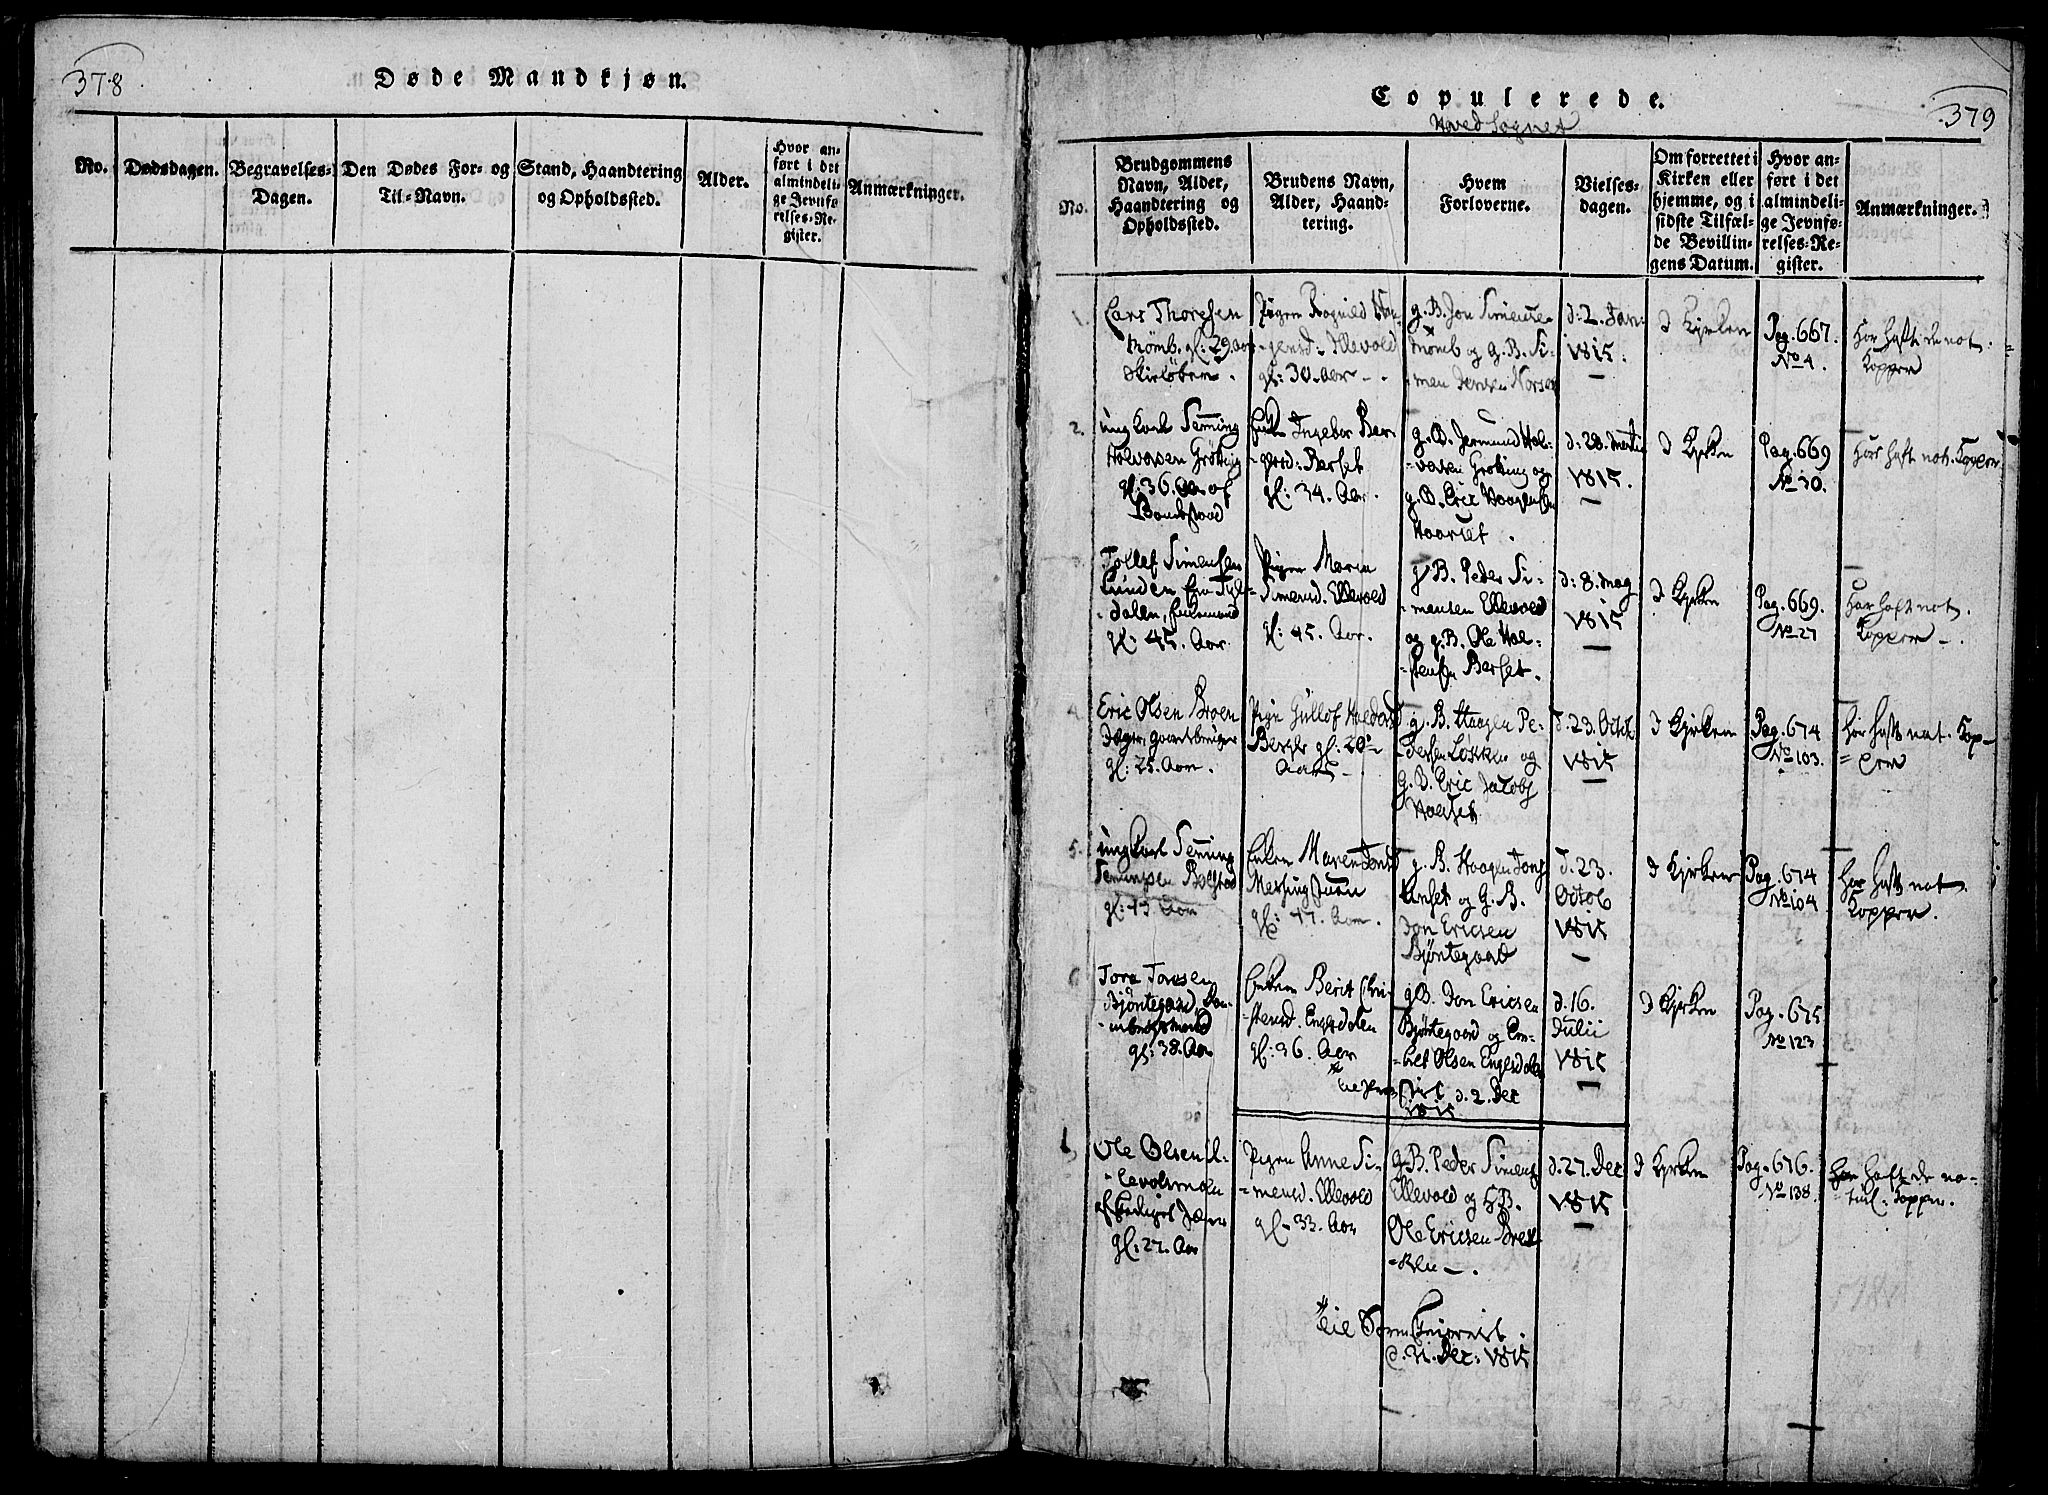 378
Døde Mandkjøn.
No.
Dødsdagen.
Begravelses-
Dagen.
Den Dødes For- og
Til-Navn.
Stand, Haandtering
og Opholdssted.
Alder.
Hvor an-
ført i det
almindeli-
ge Jevnfø-
relses-Re-
gister.
Anmærkninger.
Copulerede.
379
Hoved Sognet
No.
Brudgommens
Navn, Alder,
Haandtering og
Opholdssted.
Brudens Navn,
Alder, Haand-
tering.
Hvem
Forloverne.
Vielses-
dagen.
Om forrettet i
Kirken eller
hjemme, og i
sidste Tilfæl-
de Bevillin-
gens Datum.
Hvor an-
ført i det
almindeli-
ge Jevnfø-
relses-Re-
gister.
Anmærkninger.
1.
Lars Thoresen
Mømb. gl: 29. Aar
Pigen Ragnild
Ellevold
gl: 30. Aar -
g. B. Jon Simense
Mømb og G. B. Si-
men Jensen
d. 2. Jan:
1815.
I Kyrken
Pag. 667.
No 4.
Har haft de nat.
Kopper
2.
ung Karl Semming
Halvorsen Grøtting
gl: 36. Aar af
Enken Ingebor Bar-
Berset
gl: 34. Aar.
g. B. Jermund Hal-
vorsen Grøtting og
g. B. Eric Haagensen
Haarset.
d: 28. Martii
1815.
I Kyrken
Pag. 669
No 30.
Har haft nat. Kopper
Tollef Simensen
Lunden fra Tyl-
dalen, Enkemand
gl: 45. Aar.
Pigen Maria
Simensd. Ellevold
gl: 45. Aar.
g B. Peder Si-
mensen Ellevold
og g. B. Ole Hal-
stensen Berset.
d: 8. May
1815
I Kyrken
Pag. 669.
No 27
Har haft nat.
Kopper -.
4.
Eric Olsen Broen
gl: 25. Aar.
Pige Gullof Haldorsd
Berset gl: 20
Aar -
g. B. Haagen Pe-
dersen Løkken og
G. B. Eric Jacobs
Haarset
d. 23. Octb.
1815
I Kyrken
Pag. 674
No 103.
Har haft nat. Kop-
= per
5.
ung Karl Semming
Semmingsen Bolstad
gl: 43 Aar
Enken Maren Jonsd
gl: 47. Aar.
g. B. Haagen Jons
Unset og G. B.
Jon Ericsen
Bjøntegaard
d. 23.
Octob
1815
I Kyrken
Pag. 674
No 104
Har haft nat.
Kopper.
6
Tore Jonsen
Bjøntegaard,
gl: 38. Aar
Enken Berit Chri-
stensd. Engesdalen
gl: 36. Aar
g B. Jon Ericsen
Bjøntegaard og Em-
bret Olsen Engesdalen
d. 16.
Julii
1815
I Kyrken
Pag. 675
No 123
d. 2. Dec
1815
1,
Ole Olsen
gl: 27. Aar
Pigen Anne Si-
= mensd. Ellevold
gl - 33. Aar
g. B. Peder Simens
Ellevold og G B.
Ole Ericsen Brek-
= ken -.
d. 27. Dec
1815
I Kyrken
Pag. 676.
No 138.
Har haft de na-
turl. Kopper.
d. 31. Dec: 1815